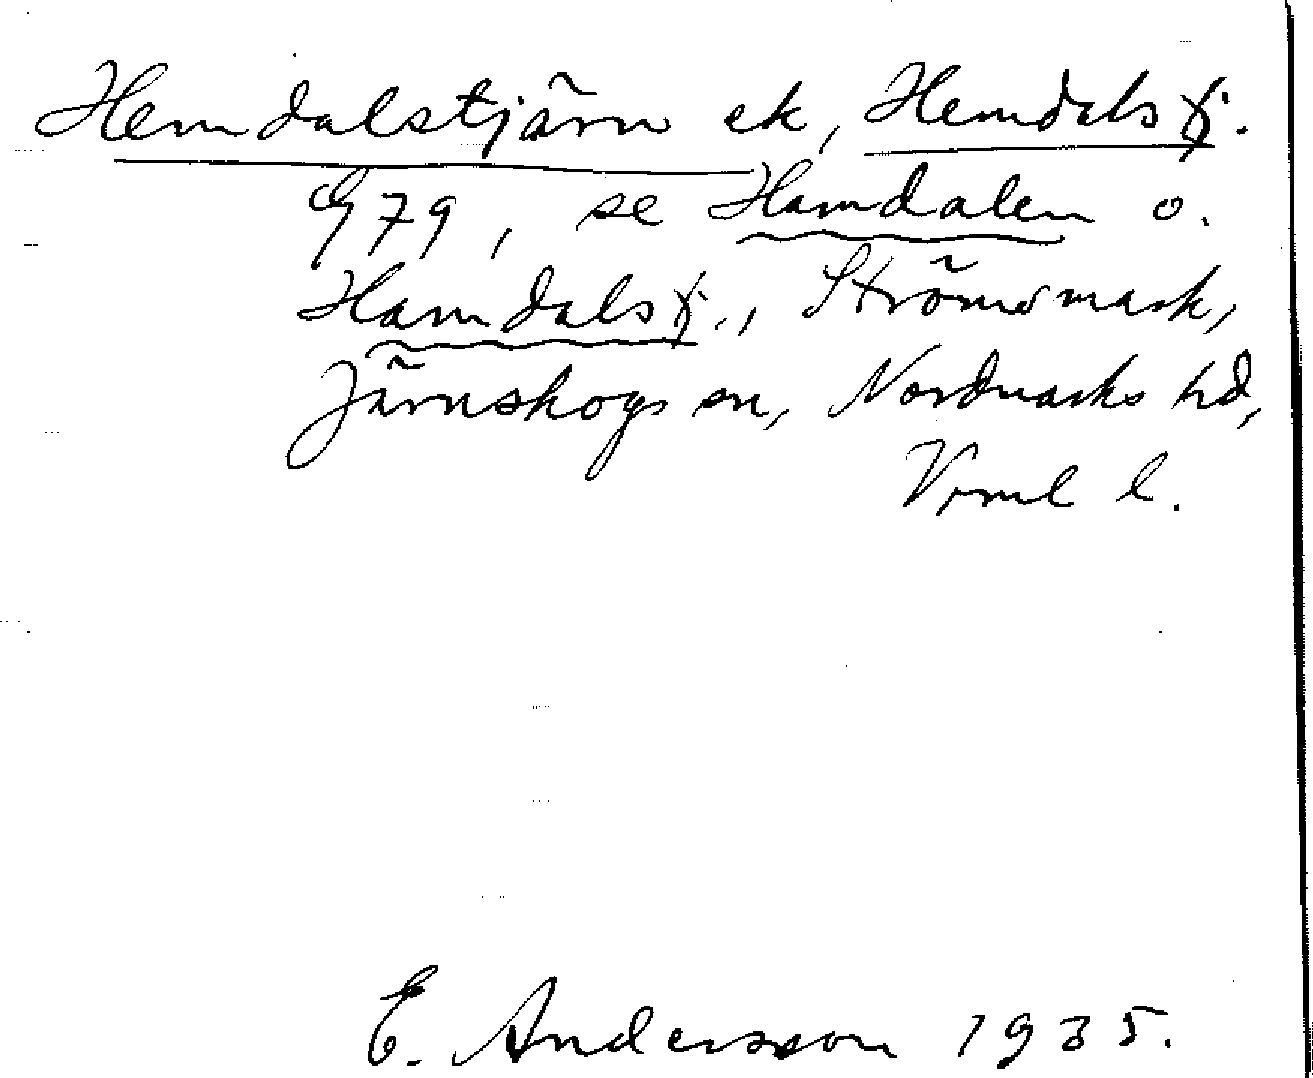 Hemdalstjärn ek, Hemdals tj.
G 79, se Hamdalen o.
Hamdals tj., Strömsmark,
Järnskogs sn, Nordmarks hd,
Vrml l.
E. Andersson 1935.